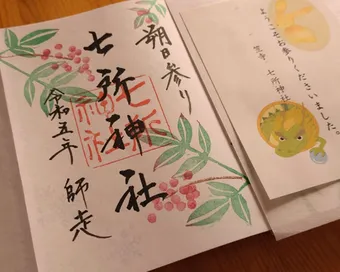 朔日参り
七所神社
令和五年 師走
七所神社
ようこそお参りくださいました。
笠寺 七所神社